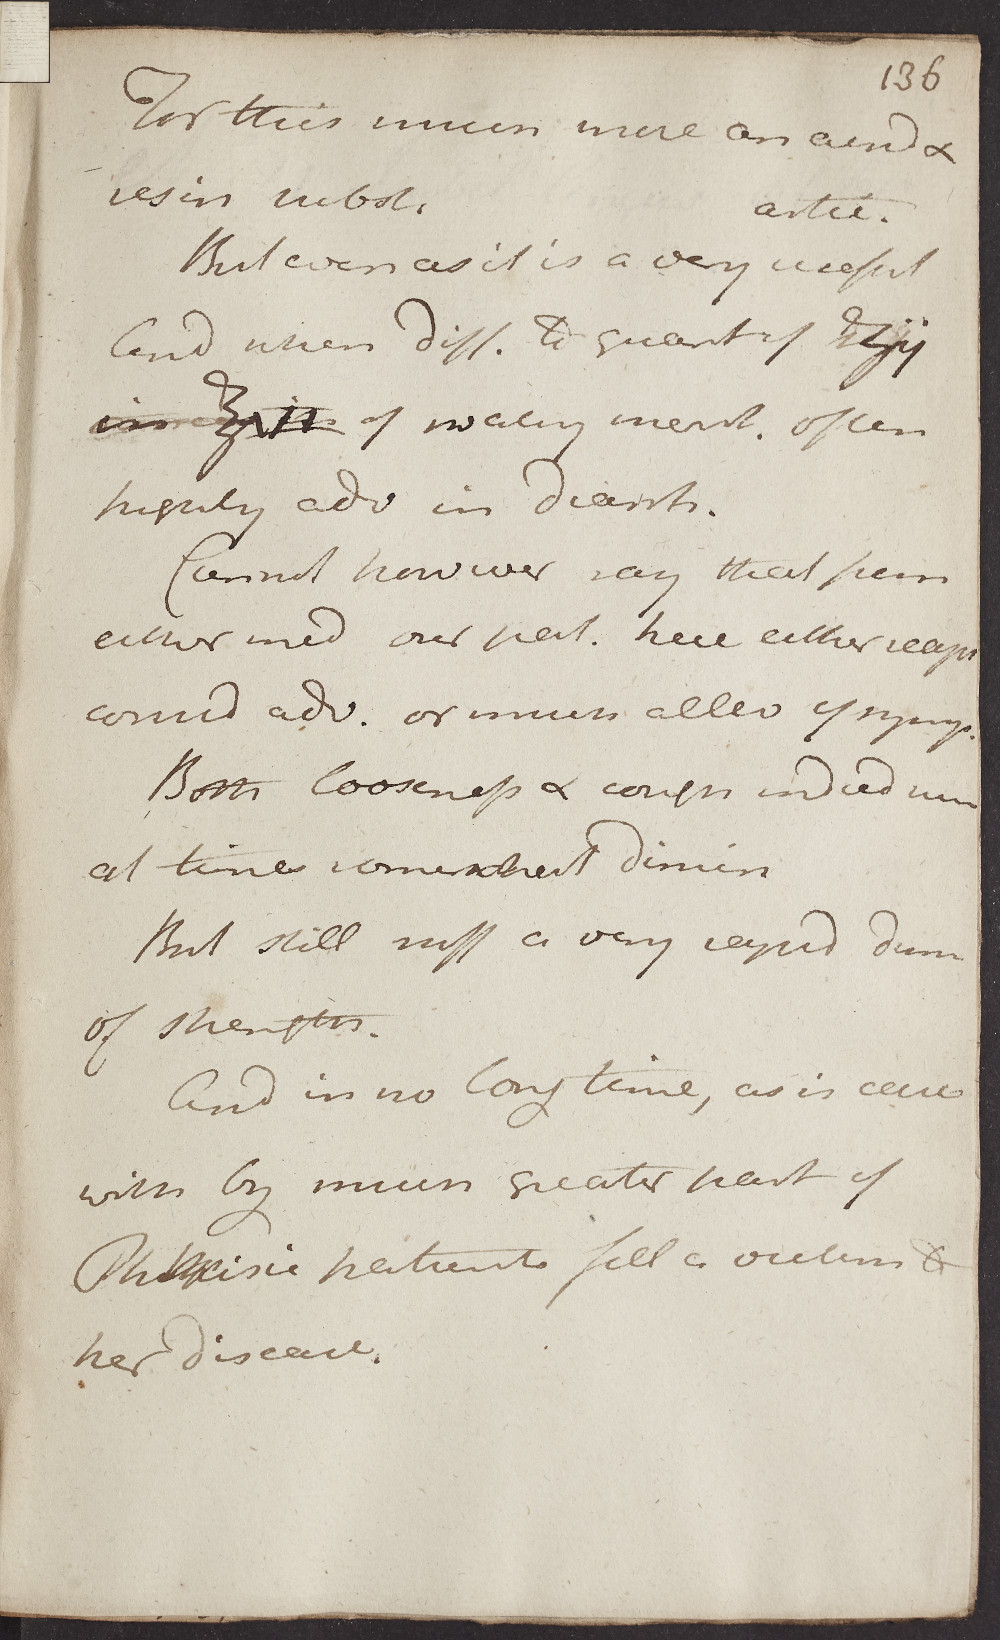 136
For this much more an acrid &
resin subst. artic.
But even as it is a very useful
And when diss. to quant of ʒij
in ℥vii of watery menst. often
highly adv in diarrh.
Cannot however say that from
either med our pat. here either
consid adv. or much allev of symp.
Both looseness & cough indeed were
at times somewhat dimin
But still suff a very rapid dimin
of strength.
And in no long time, as is case
with by much greater part of
Phthisic patients fell a victim to
her disease.